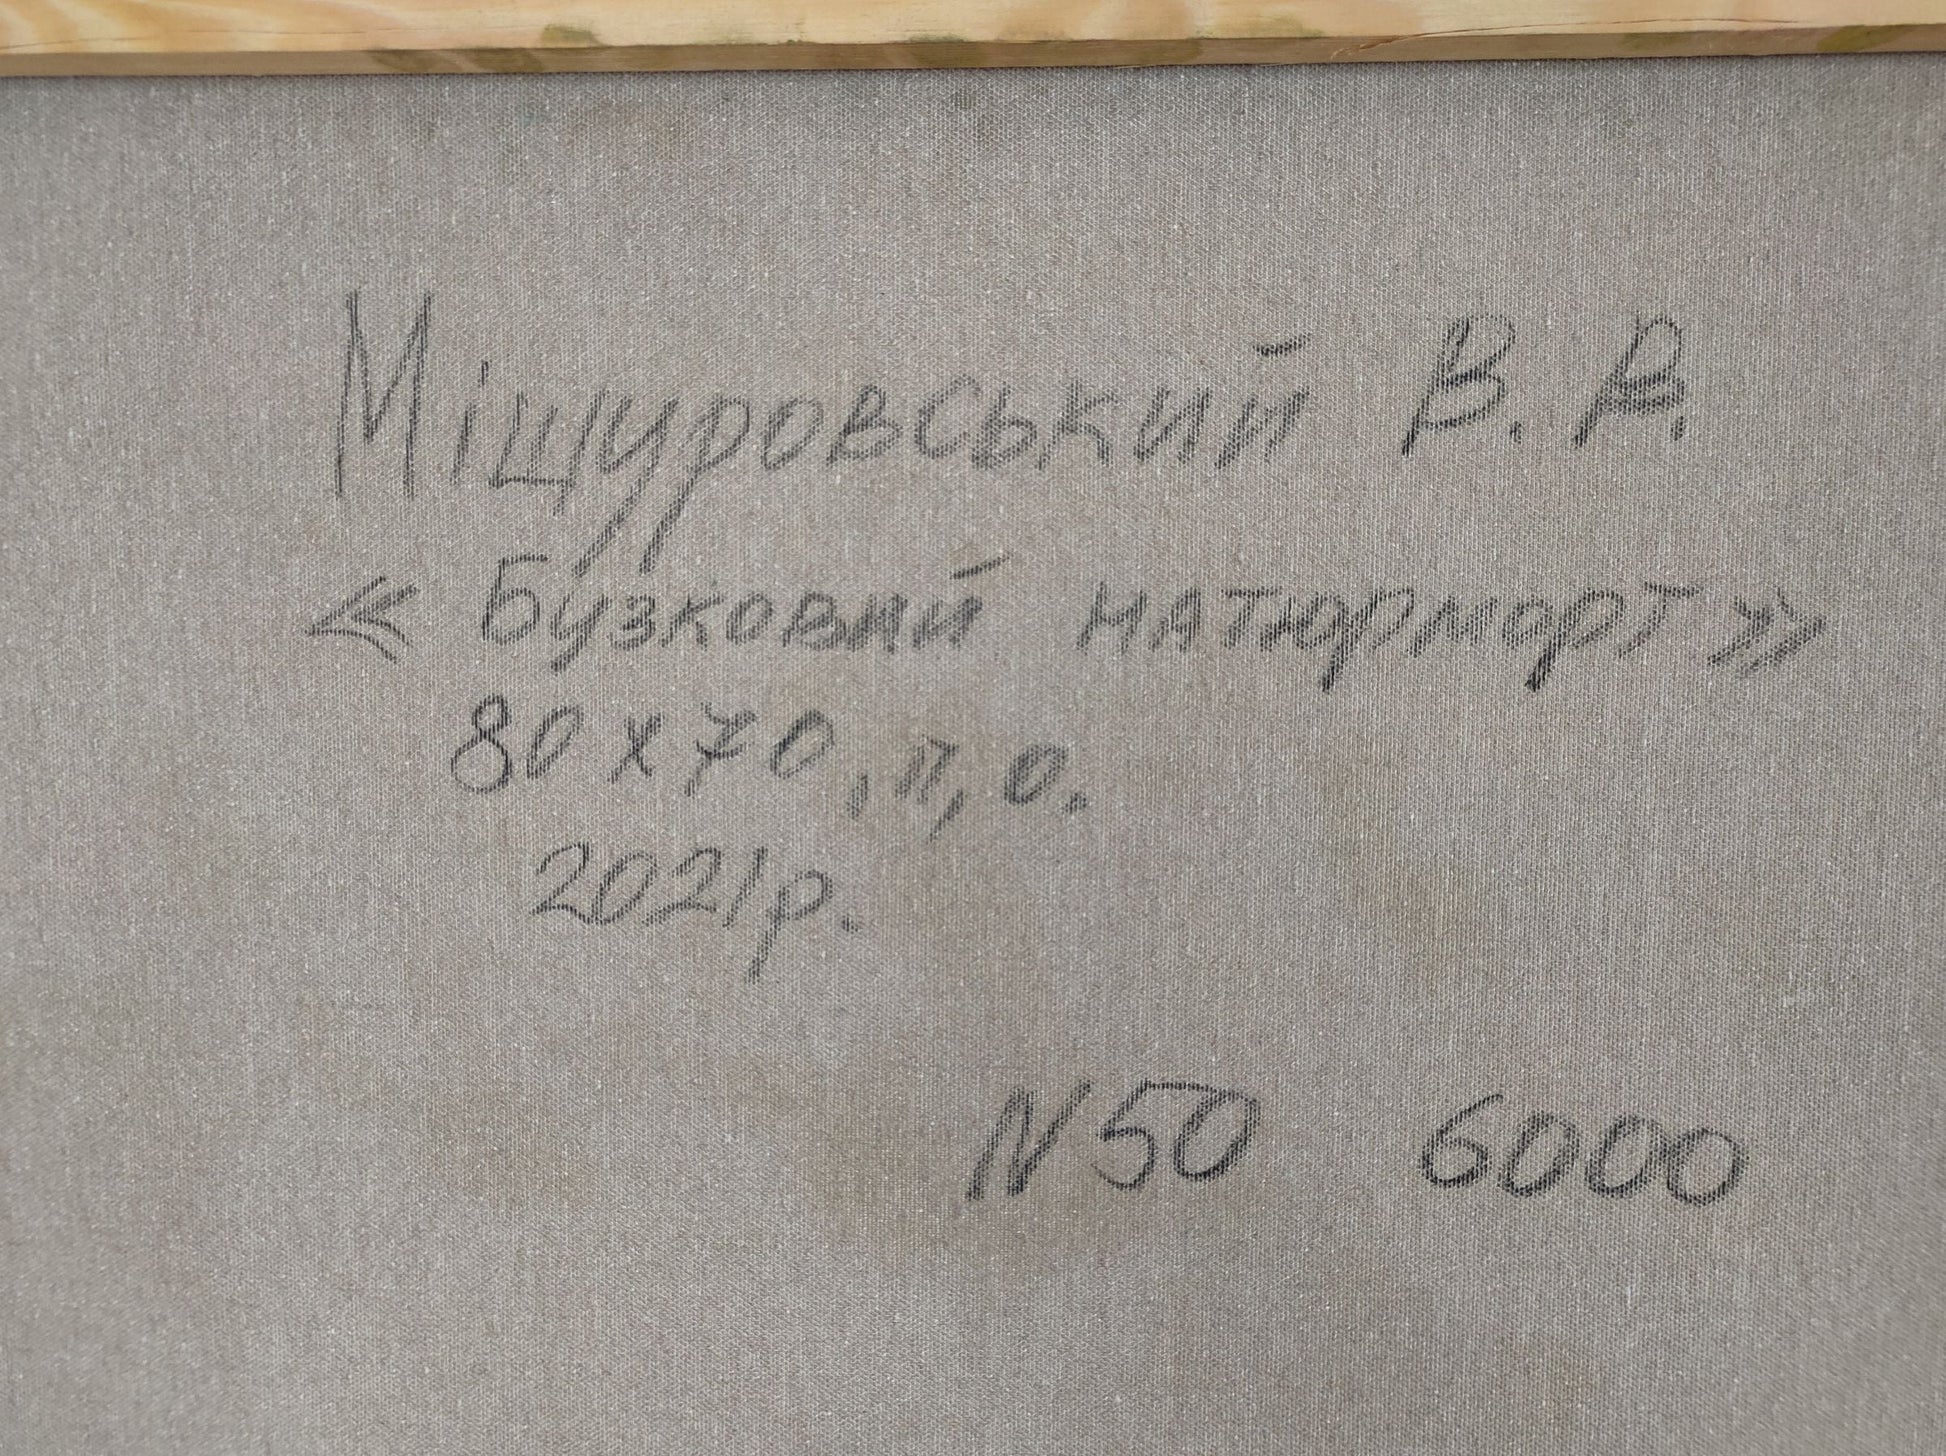 Міщуровський В. В.
« Бузковий натюрморт »
80 х 70, п, о.
2021р.
N50 6000